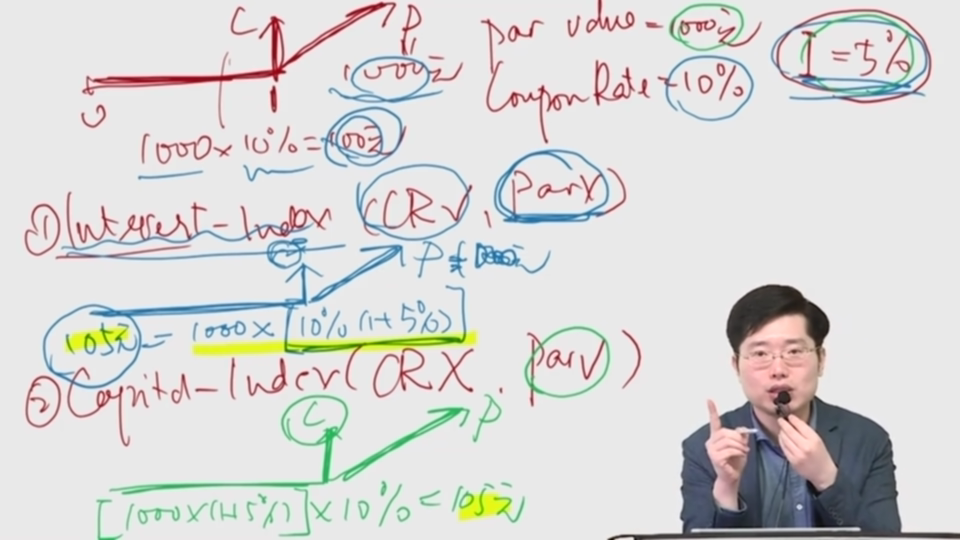 C P par value = 1000元 I = 5%
1000元 Coupon Rate = 10%
0 1
1000 × 10% = 100元
① Interest-Index (CR√, Par X)
C P = 1000元
105元 = 1000 × [10% (1+5%)]
② Capital-Index (CR X, Par √)
C P
[1000×(1+5%)] × 10% = 105元